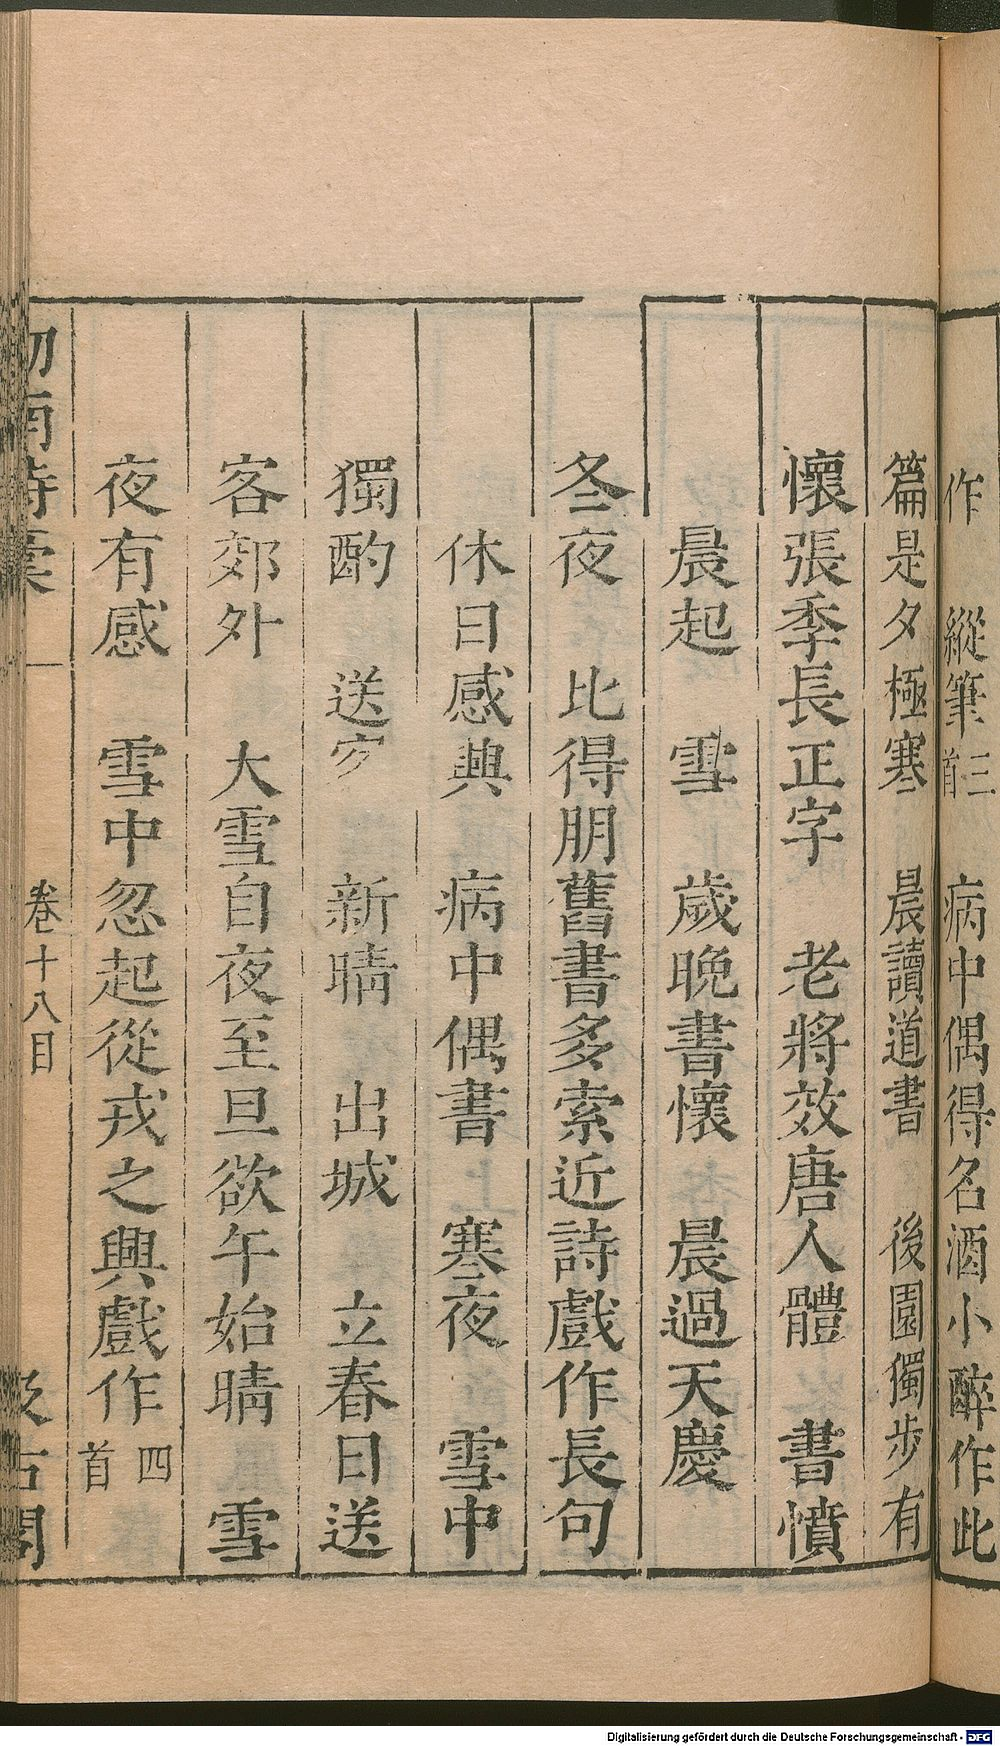 作　縱筆三首　病中偶得名酒小醉作此
篇是夕極寒　晨讀道書　後園獨步有
懷張季長正字　老將效唐人體　書憤
晨起　雪　歲晚書懷　晨過天慶
冬夜　比得朋舊書多索近詩戲作長句
休日感興　病中偶書　寒夜　雪中
獨酌　送　新晴　出城　立春日送
客郊外　大雪自夜至旦欲午始晴　雪
夜有感　雪中忽起從戎之興戲作四首
劒南詩稾　卷十八目　汲古閣
Digitalisierung gefördert durch die Deutsche Forschungsgemeinschaft - DFG